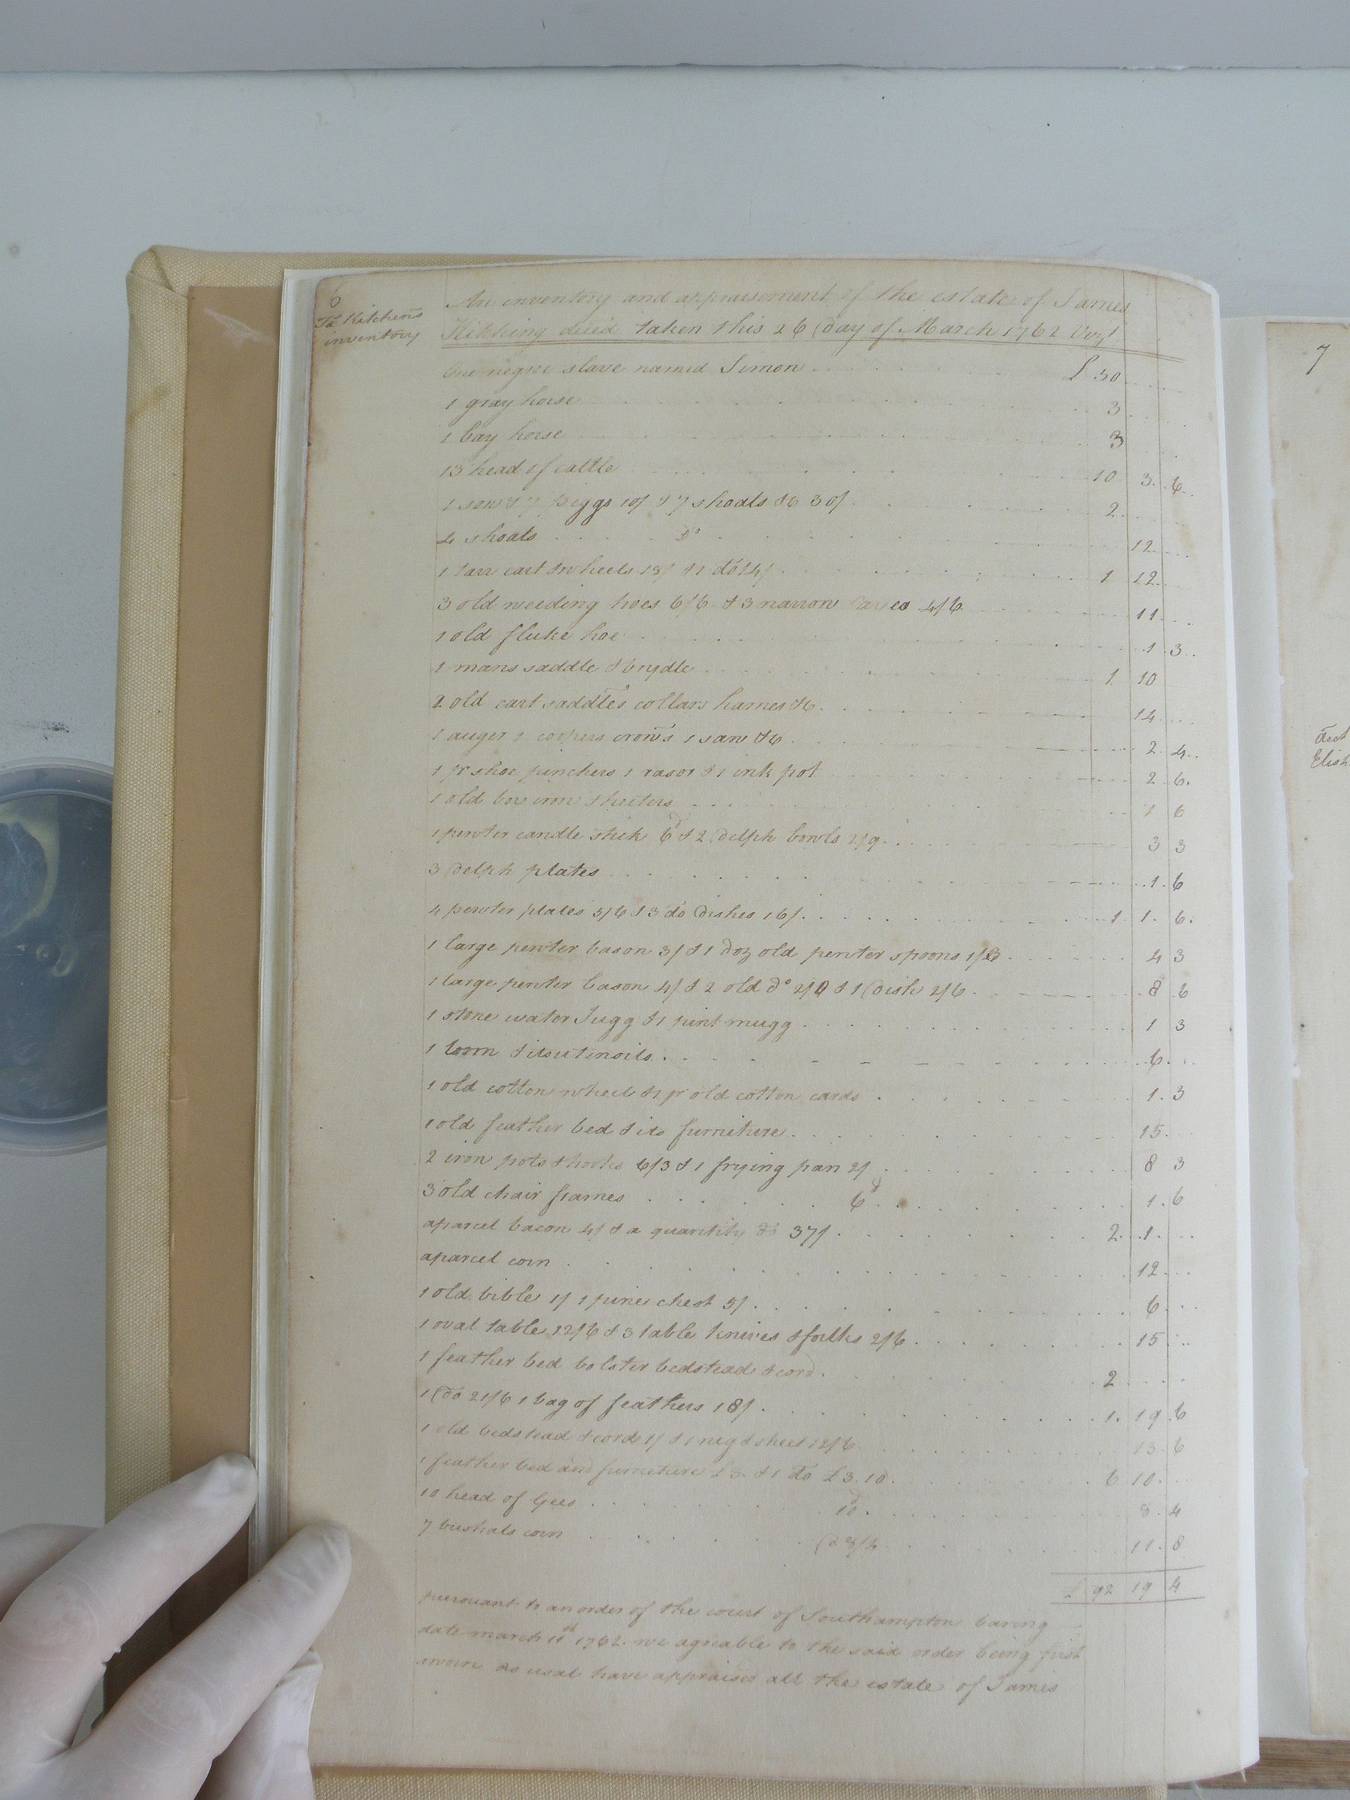 6
Jas Kitchens
inventory
An inventory and appraisement of the estate of James
Kitching deced taken this 26 Day of March 1762 Vizt
One negroe slave named Simon £ 50
1 gray horse 3
1 bay horse 3
13 head of cattle 10 3 6
1 sow & 7 piggs 10/ & 7 shoats &c 30/ 2
4 shoats Do 12
1 tarr cart & wheels 18/ & 1 do 14/ 1 12
3 old weeding hoes 6/6 & 3 narrow 4/6 11
1 old fluke hoe 1 3
1 mans saddle & brydle 1 10
2 old cart saddles collars hames &c 14
1 auger 2 coopers crows 1 saw &c 2 4
1 pr shoe pinchers 1 rasor & 1 ink pot 2 6
1 old box iron & heeters 1 6
1 pewter candle stick 6d & 2 Delph bowls 2/9 3 3
3 Delph plates 1 6
4 pewter plates 5/6 & 3 do Dishes 16/ 1 1 6
1 large pewter bason 3/ & 1 Doz old pewter spoons 1/3 4 3
1 large pewter bason 4/ & 2 old do 2/ & 1 Dish 2/6 8 6
1 stone water Jugg & 1 pint mugg 1 3
1 loom & its utinsils 6
1 old cotton wheel & 1 pr old cotton cards 1 3
1 old feather bed & its furniture 15
2 iron pots & hooks 6/3 & 1 frying pan 2/ 8 3
3 old chair frames 6d 1 6
a parcel bacon 4/ & a quantity do 37/ 2 1
a parcel corn 12
1 old bible 1/ 1 pine chest 5/ 6
1 oval table 12/6 & 3 table knives & folks 2/6 15
1 feather bed bolster bedstead & cord 2
1 Do 21/6 1 bag of feathers 18/ 1 19 6
1 old bedstead & cord 1/ & 1 rug & sheet 12/6 13 6
1 feather bed and furniture £3 & 1 Do £3.10 6 10
10 head of Gees 10d 8 4
7 bushals corn 11 8
£ 92 19 4
pursuant to an order of the court of Southampton baring
date march 11th 1762 we agreable to the said order being first
sworn as usal have appraised all the estate of James
7
Elish